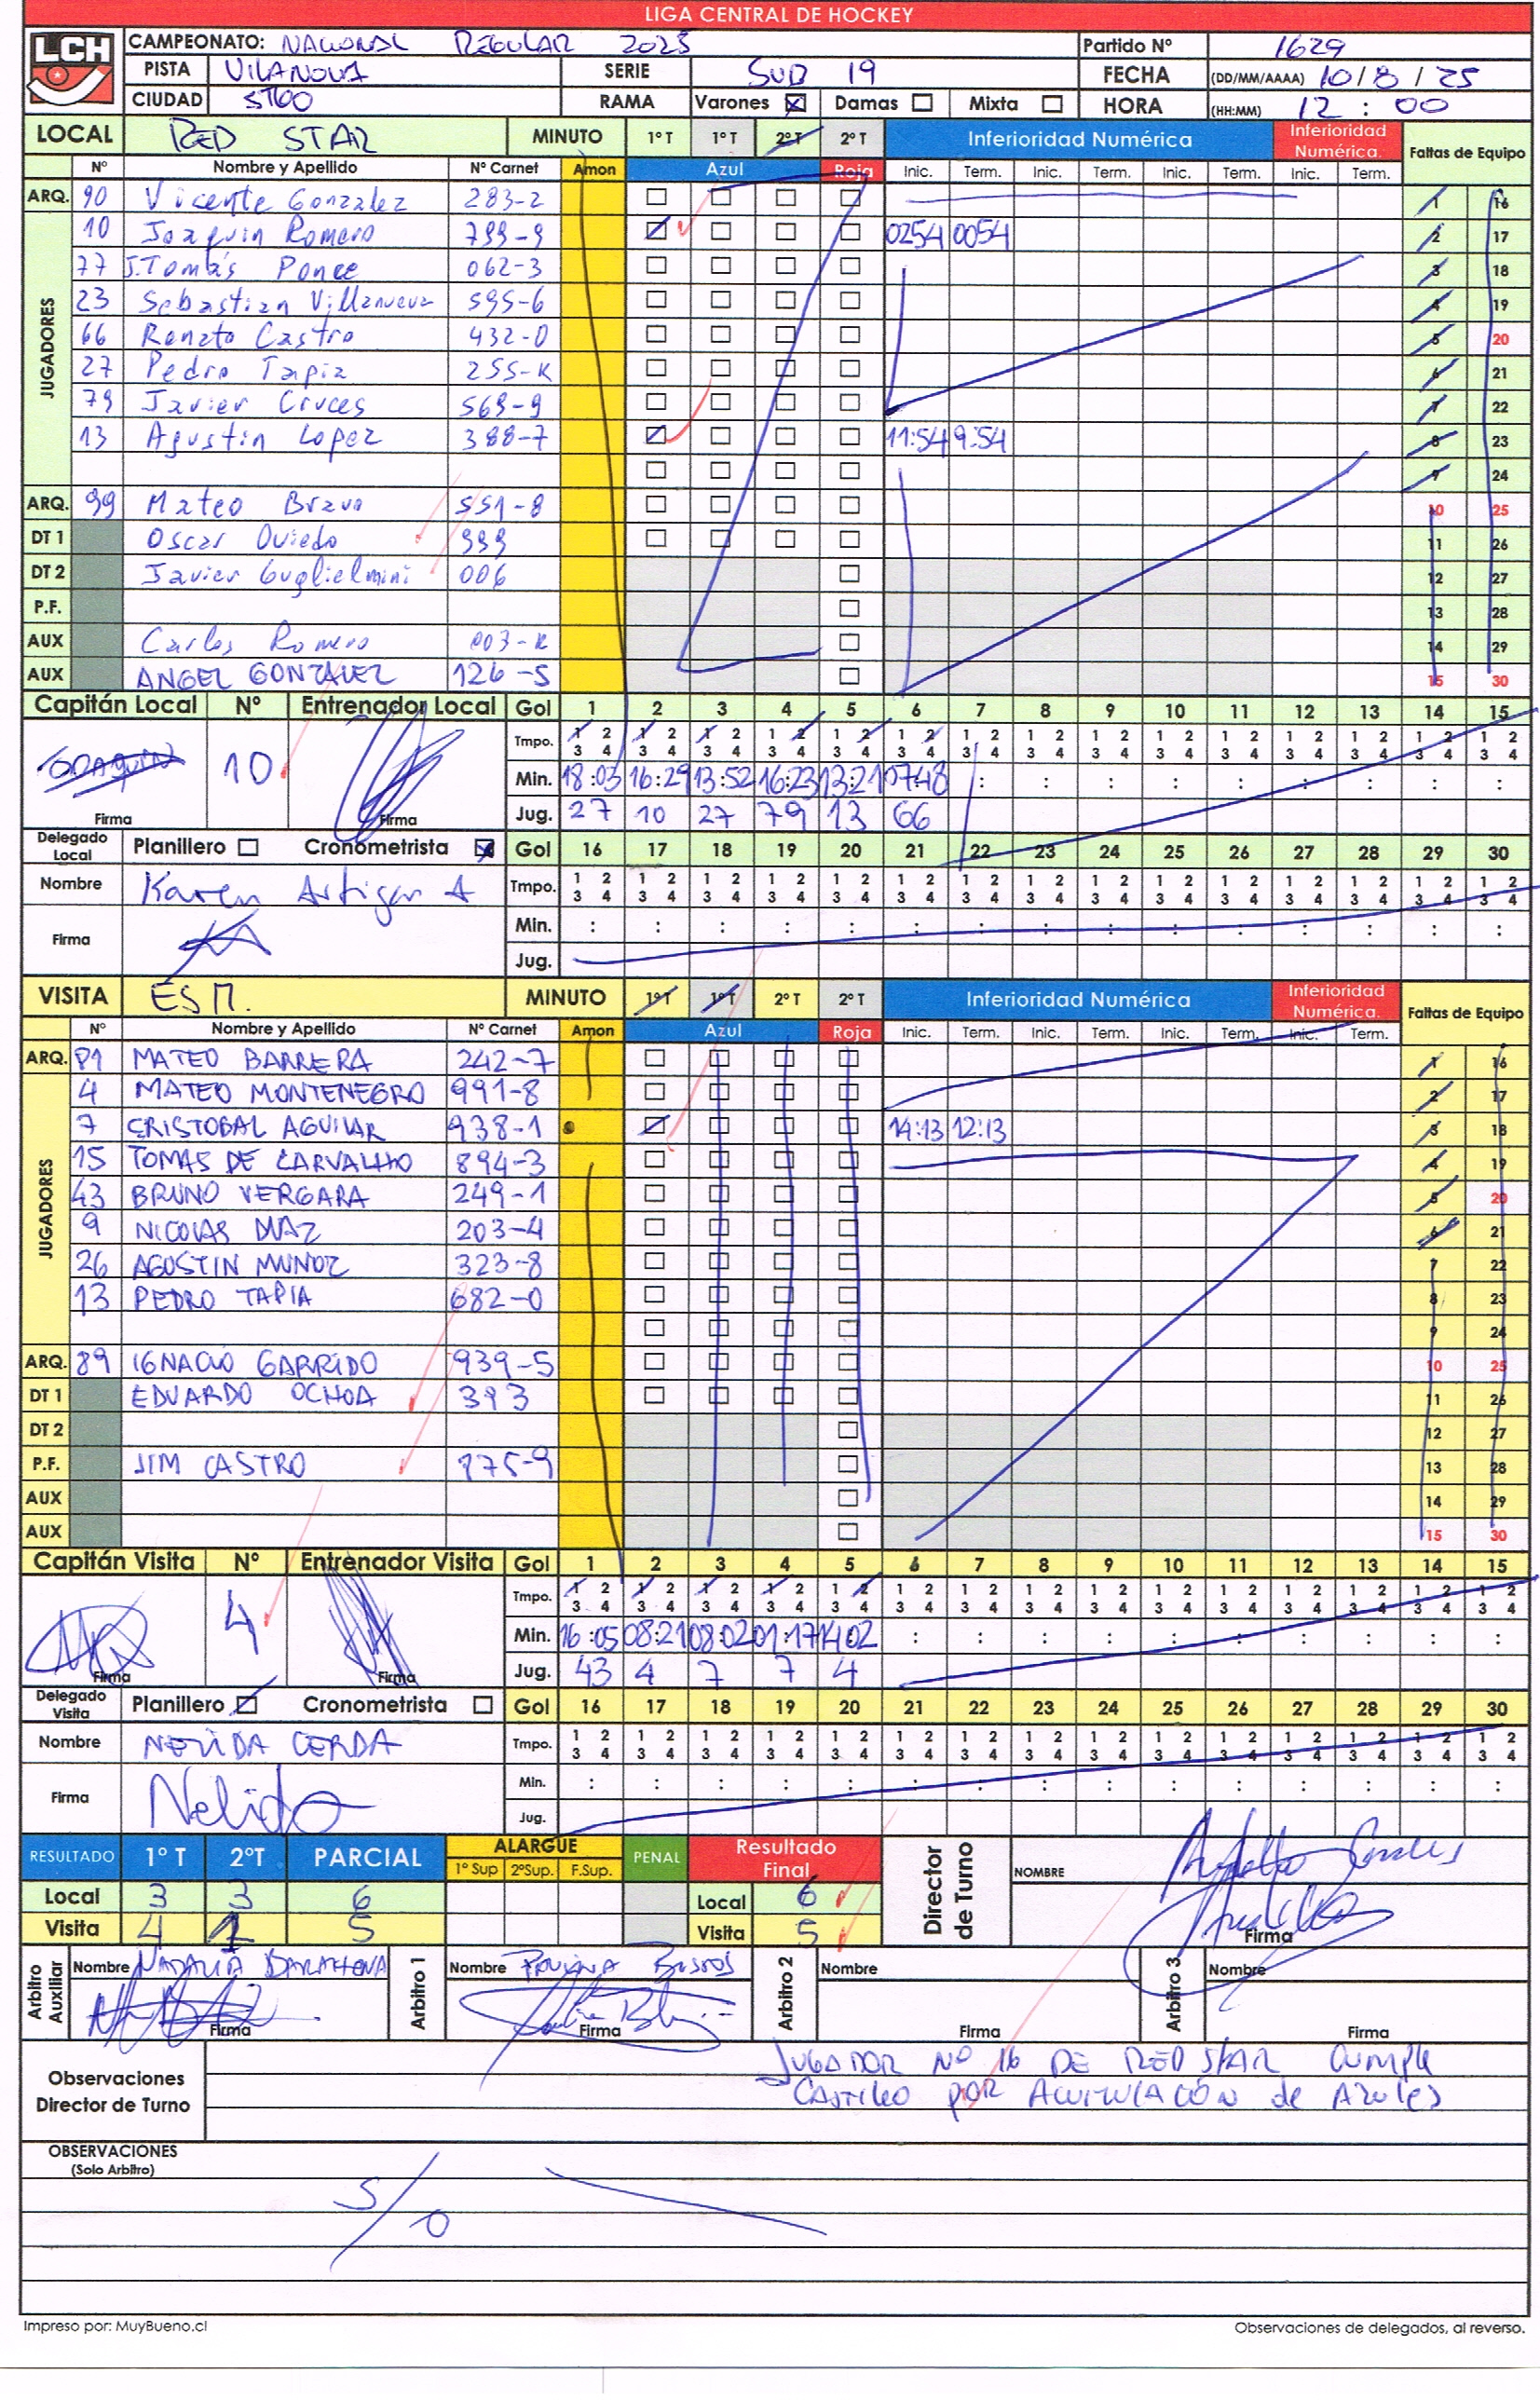 LIGA CENTRAL DE HOCKEY
LCH
CAMPEONATO: NACIONAL REGULAR 2025 Partido Nº 1629
PISTA VILANOVA SERIE SUB 19 FECHA (DD/MM/AAAA) 10/8/25
CIUDAD STGO RAMA Varones Damas Mixta HORA (HH:MM) 12:00
LOCAL RED STAR MINUTO 1º T 1º T 2º T 2º T Inferioridad Numérica Inferioridad Numérica. Faltas de Equipo
Nº Nombre y Apellido Nº Carnet Amon Azul Roja Inic. Term. Inic. Term. Inic. Term. Inic. Term.
ARQ. 90 Vicente Gonzalez 283-2 1 16
JUGADORES
10 Joaquin Romero 799-9 0254 0054 2 17
77 J.Tomás Ponce 062-3 3 18
23 Sebastian Villanueva 595-6 4 19
66 Renato Castro 432-0 5 20
27 Pedro Tapia 255-K 6 21
79 Javier Cruces 569-9 7 22
13 Agustin Lopez 388-7 11:54 9:54 8 23
9 24
ARQ. 99 Mateo Bravo 551-8 10 25
DT 1 Oscar Oviedo 999 11 26
DT 2 Javier Guglielmini 006 12 27
P.F. 13 28
AUX Carlos Romero 003-K 14 29
AUX ANGEL GONZALEZ 126-5 15 30
Capitán Local Nº Entrenador Local Gol 1 2 3 4 5 6 7 8 9 10 11 12 13 14 15
JOAQUIN 10 Tmpo. 1 2 3 4 1 2 3 4 1 2 3 4 1 2 3 4 1 2 3 4 1 2 3 4 1 2 3 4 1 2 3 4 1 2 3 4 1 2 3 4 1 2 3 4 1 2 3 4 1 2 3 4 1 2 3 4 1 2 3 4
Min. 18:03 16:29 13:52 16:23 13:21 07:48 : : : : : : : : :
Firma Firma Jug. 27 10 27 79 13 66
Delegado Local Planillero Cronometrista Gol 16 17 18 19 20 21 22 23 24 25 26 27 28 29 30
Nombre Karen Artigas A Tmpo. 1 2 3 4 1 2 3 4 1 2 3 4 1 2 3 4 1 2 3 4 1 2 3 4 1 2 3 4 1 2 3 4 1 2 3 4 1 2 3 4 1 2 3 4 1 2 3 4 1 2 3 4 1 2 3 4 1 2 3 4
Firma Min. : : : : : : : : : : : : : : :
Jug.
VISITA ESM. MINUTO 1º T 1º T 2º T 2º T Inferioridad Numérica Inferioridad Numérica. Faltas de Equipo
Nº Nombre y Apellido Nº Carnet Amon Azul Roja Inic. Term. Inic. Term. Inic. Term. Inic. Term.
ARQ. 81 MATEO BARRERA 242-7 1 16
JUGADORES
4 MATEO MONTENEGRO 991-8 2 17
7 CRISTOBAL AGUILAR 938-1 14:13 12:13 3 18
15 TOMAS DE CARVALHO 894-3 4 19
43 BRUNO VERGARA 249-1 5 20
9 NICOLAS DIAZ 203-4 6 21
26 AGUSTIN MUNOZ 323-8 7 22
13 PEDRO TAPIA 682-0 8 23
9 24
ARQ. 89 IGNACIO GARRIDO 939-5 10 25
DT 1 EDUARDO OCHOA 393 11 26
DT 2 12 27
P.F. JIM CASTRO 175-9 13 28
AUX 14 29
AUX 15 30
Capitán Visita Nº Entrenador Visita Gol 1 2 3 4 5 6 7 8 9 10 11 12 13 14 15
4 Tmpo. 1 2 3 4 1 2 3 4 1 2 3 4 1 2 3 4 1 2 3 4 1 2 3 4 1 2 3 4 1 2 3 4 1 2 3 4 1 2 3 4 1 2 3 4 1 2 3 4 1 2 3 4 1 2 3 4 1 2 3 4
Min. 16:05 08:21 08:02 01:17 14:02 : : : : : : : : : :
Firma Firma Jug. 43 4 7 7 4
Delegado Visita Planillero Cronometrista Gol 16 17 18 19 20 21 22 23 24 25 26 27 28 29 30
Nombre NELIDA CERDA Tmpo. 1 2 3 4 1 2 3 4 1 2 3 4 1 2 3 4 1 2 3 4 1 2 3 4 1 2 3 4 1 2 3 4 1 2 3 4 1 2 3 4 1 2 3 4 1 2 3 4 1 2 3 4 1 2 3 4 1 2 3 4
Firma Nelida Min. : : : : : : : : : : : : : : :
Jug.
RESULTADO 1º T 2ºT PARCIAL ALARGUE 1º Sup 2ºSup. F.Sup. PENAL Resultado Final Director de Turno NOMBRE
Local 3 3 6 Local 6
Visita 4 1 5 Visita 5 Firma
Arbitro Auxiliar Nombre NATALIA Arbitro 1 Nombre Arbitro 2 Nombre Arbitro 3 Nombre
Firma Firma Firma Firma
Observaciones Director de Turno
JUGADOR Nº 16 DE RED STAR CUMPLE
CASTIGO POR ACUMULACIÓN de AZULES
OBSERVACIONES
(Solo Arbitro)
S/O
Impreso por: MuyBueno.cl Observaciones de delegados, al reverso.